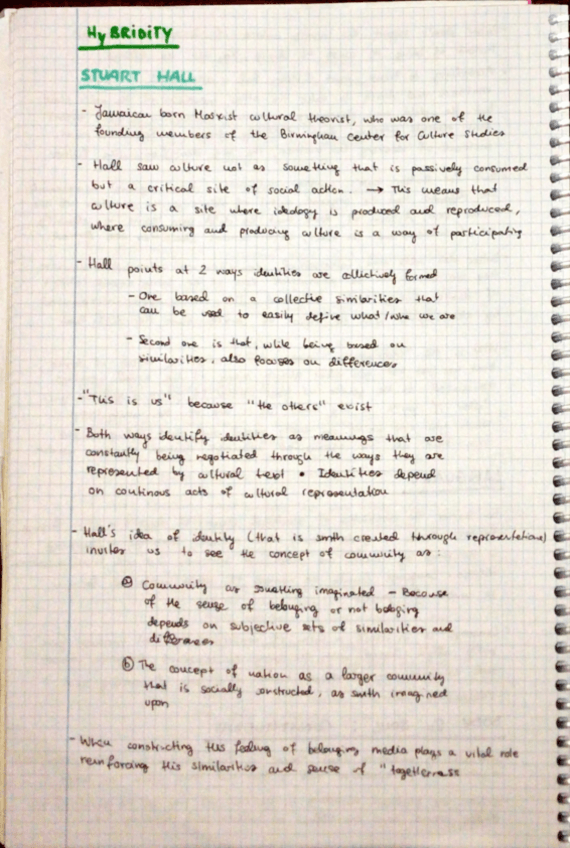 HyBRIDITY
STUART HALL
- Jamaican born Marxist cultural theorist, who was one of the
founding members of the Birmingham Center for Culture Studies
- Hall saw culture not as something that is passively consumed
but a critical site of social action. → This means that
culture is a site where ideology is produced and reproduced,
where consuming and producing culture is a way of participating
- Hall points at 2 ways identities are collectively formed
- One based on a collective similarities that
can be used to easily define what/who we are
- Second one is that, while being based on
similarities, also focuses on differences
- "This is us" because "the others" exist
- Both ways identify identities as meanings that are
constantly being negotiated through the ways they are
represented by cultural text • Identities depend
on continous acts of cultural representation
- Hall's idea of identity (that is smth created through representation)
invites us to see the concept of community as:
ⓐ Community as something imaginated - Because
of the sense of belonging or not beloging
depends on subjective sets of similarities and
differences
ⓑ The concept of nation as a larger community
that is socially constructed, as smth imagined
upon
- When constructing this feeling of belonging media plays a vital role
reinforcing this similarities and sense of "togetherness